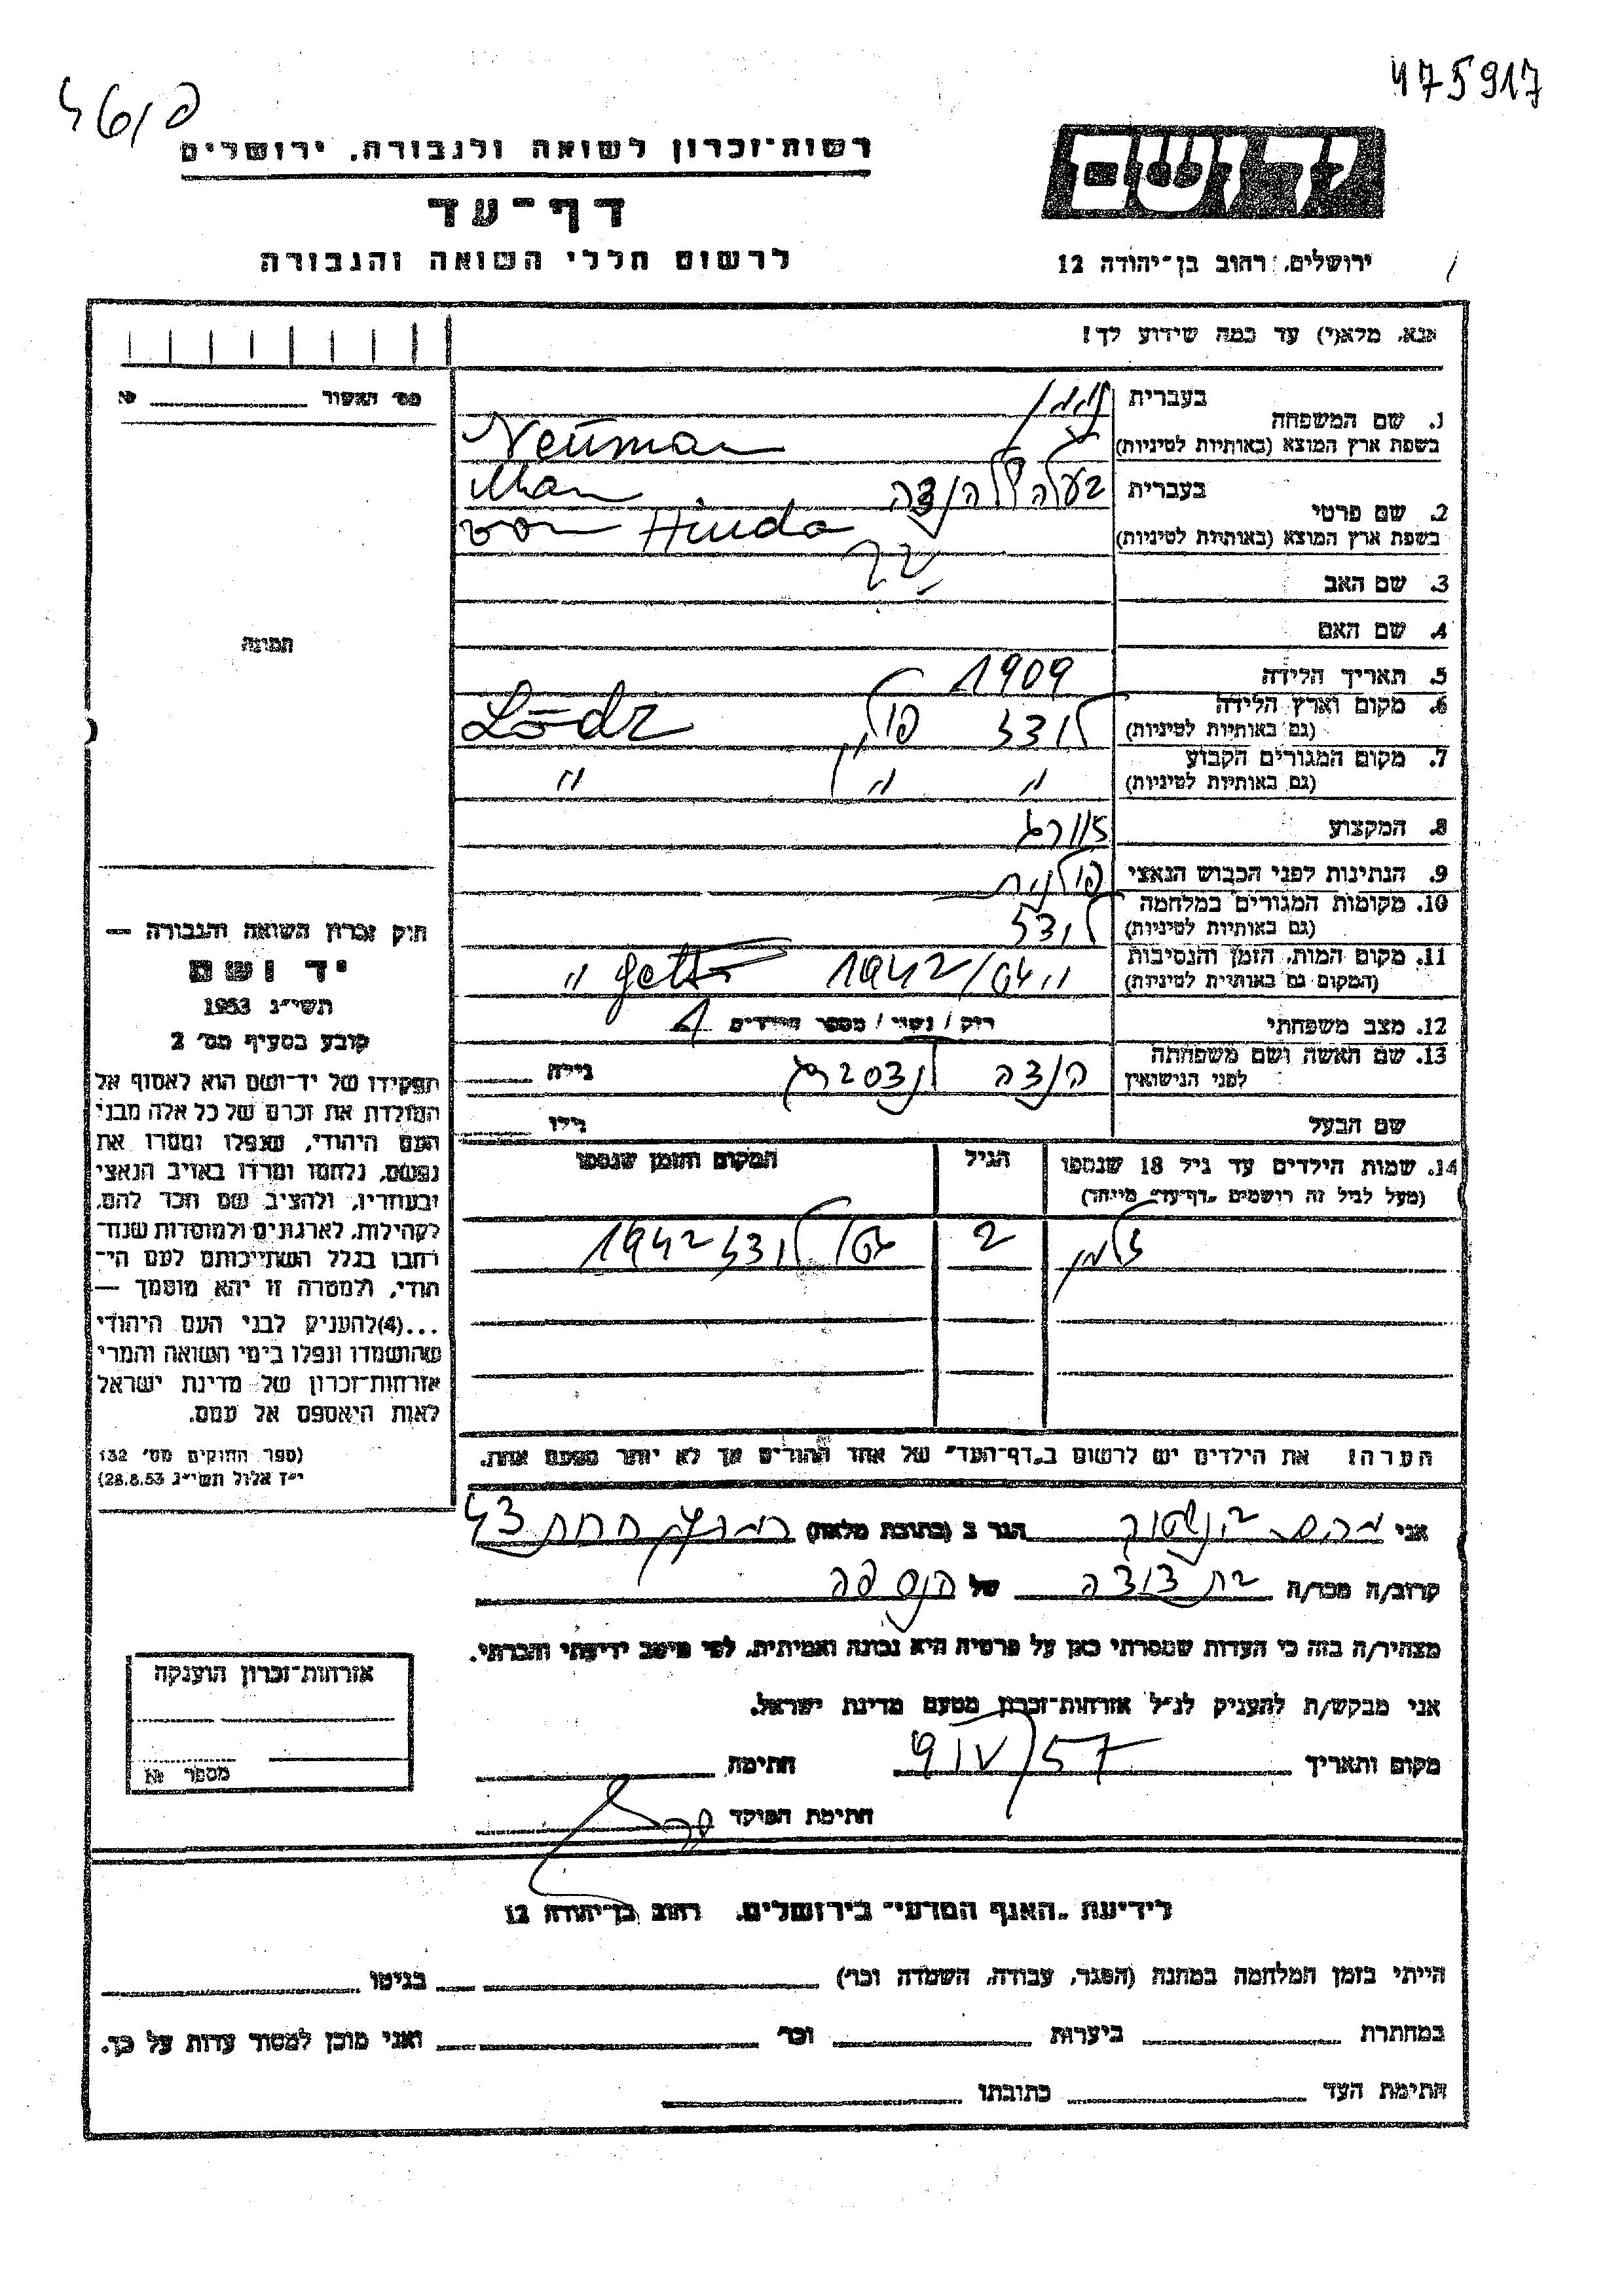 475917
רשות-זכרון לשואה ולגבורה, ירושלים
דף-עד
לרשום חללי השואה והגבורה
יד ושם
ירושלים, רחוב בן-יהודה 12
אנא, מלא(י) עד כמה שידוע לך!
מס' האשור №
1. שם המשפחה
בעברית
בשפת ארץ המוצא (באותיות לטיניות)
Neuman
2. שם פרטי
בעברית
בעלה של הנדה
Man
בשפת ארץ המוצא (באותיות לטיניות)
von Hinda
3. שם האב
4. שם האם
5. תאריך הלידה 1909
6. מקום וארץ הלידה
(גם באותיות לטיניות)
לודז פולין Lodz
7. מקום המגורים הקבוע
(גם באותיות לטיניות)
" " "
8. המקצוע
9. הנתינות לפני הכבוש הנאצי פולנית
10. מקומות המגורים במלחמה
(גם באותיות לטיניות)
לודז
11. מקום המות, הזמן והנסיבות
(המקום גם באותיות לטיניות)
1942 getto "
12. מצב משפחתי רוק / נשוי / מספר הילדים 1
13. שם האשה ושם משפחתה
לפני הנישואין
הנדה לנדסברג גילה
שם הבעל גילו
14. שמות הילדים עד גיל 18 שנספו
(מעל לגיל זה רושמים "דף-עד" מיוחד)
הגיל
המקום והזמן שנספו
זלמן 2 גטו לודז 1942
הערה: את הילדים יש לרשום ב"דף-העד" של אחד ההורים אך לא יותר מפעם אחת.
תמונה
חוק זכרון השואה והגבורה —
יד ושם
תשי"ג 1953
קובע בסעיף מס' 2
תפקידו של יד-ושם הוא לאסוף אל
המולדת את זכרם של כל אלה מבני
העם היהודי, שנפלו ומסרו את
נפשם, נלחמו ומרדו באויב הנאצי
ובעוזריו, ולהציב שם וזכר להם,
לקהילות, לארגונים ולמוסדות שנח-
רבו בגלל השתייכותם לעם הי-
הודי, ולמטרה זו יהא מוסמך —
...(4) להעניק לבני העם היהודי
שהושמדו ונפלו בימי השואה והמרי
אזרחות-זכרון של מדינת ישראל
לאות היאספם אל עמם.
(ספר החוקים מס' 132
י"ז אלול תשי"ג 28.8.53)
אני הגר ב (כתובת מלאה) 43
קרוב/ה מכר/ה בת דודה של הנספה
מצהיר/ה בזה כי העדות שמסרתי כאן על פרטיה היא נכונה ואמיתית, לפי מיטב ידיעתי והכרתי.
אני מבקש/ת להעניק לנ"ל אזרחות-זכרון מטעם מדינת ישראל.
מקום ותאריך 9/IV/57 חתימה
חתימת הפוקד
אזרחות-זכרון הוענקה
מספר №
לידיעת "האגף המדעי" בירושלים, רחוב בן-יהודה 12
הייתי בזמן המלחמה במחנה (הסגר, עבודה, השמדה וכו') בגיטו
במחתרת ביערות וכו' ואני מוכן למסור עדות על כך.
חתימת העד כתובתו